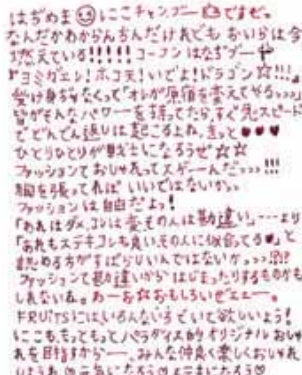 はぢめま☺にこチャンプーですぜ。
なんだかわからんちんだけれども おいらは今
燃えている!!!!!コーフンはなぢブー
『ヨミガエレ!ホコ天!いでよ!ドラゴン☆!!!』
受け身ぢゃなくって『オレが原宿を変えてやるっっっ』
皆がそんなパワーを持ってたら、すぐ 光スピード
でどんでん返しは起こるよね、きっと♥♥♥
ひとりひとりが戦士になろうぜ☆☆
ファッションて おしゃれって スゲーんだっっっ!!!
胸を張ってれば いいではないかっ。
ファッションは自由だよっ!
「あれはダメ、コレは変、その人は勘違い」…より
「あれもステキ コレも良い その人に似合ってる♥」と
認める方がすばらいんではないかっっっ!?!?
ファッションて勘違いから はじまったりするものかも
しれないね。わーお☆おもしろいぜェェー。
FRUiTSにはいろんないろどいて欲しいよう!
にこも、もっともっとパラダイス的オリジナルおしゃ
れを目指すからー、みんな仲良く楽しくおしゃれ